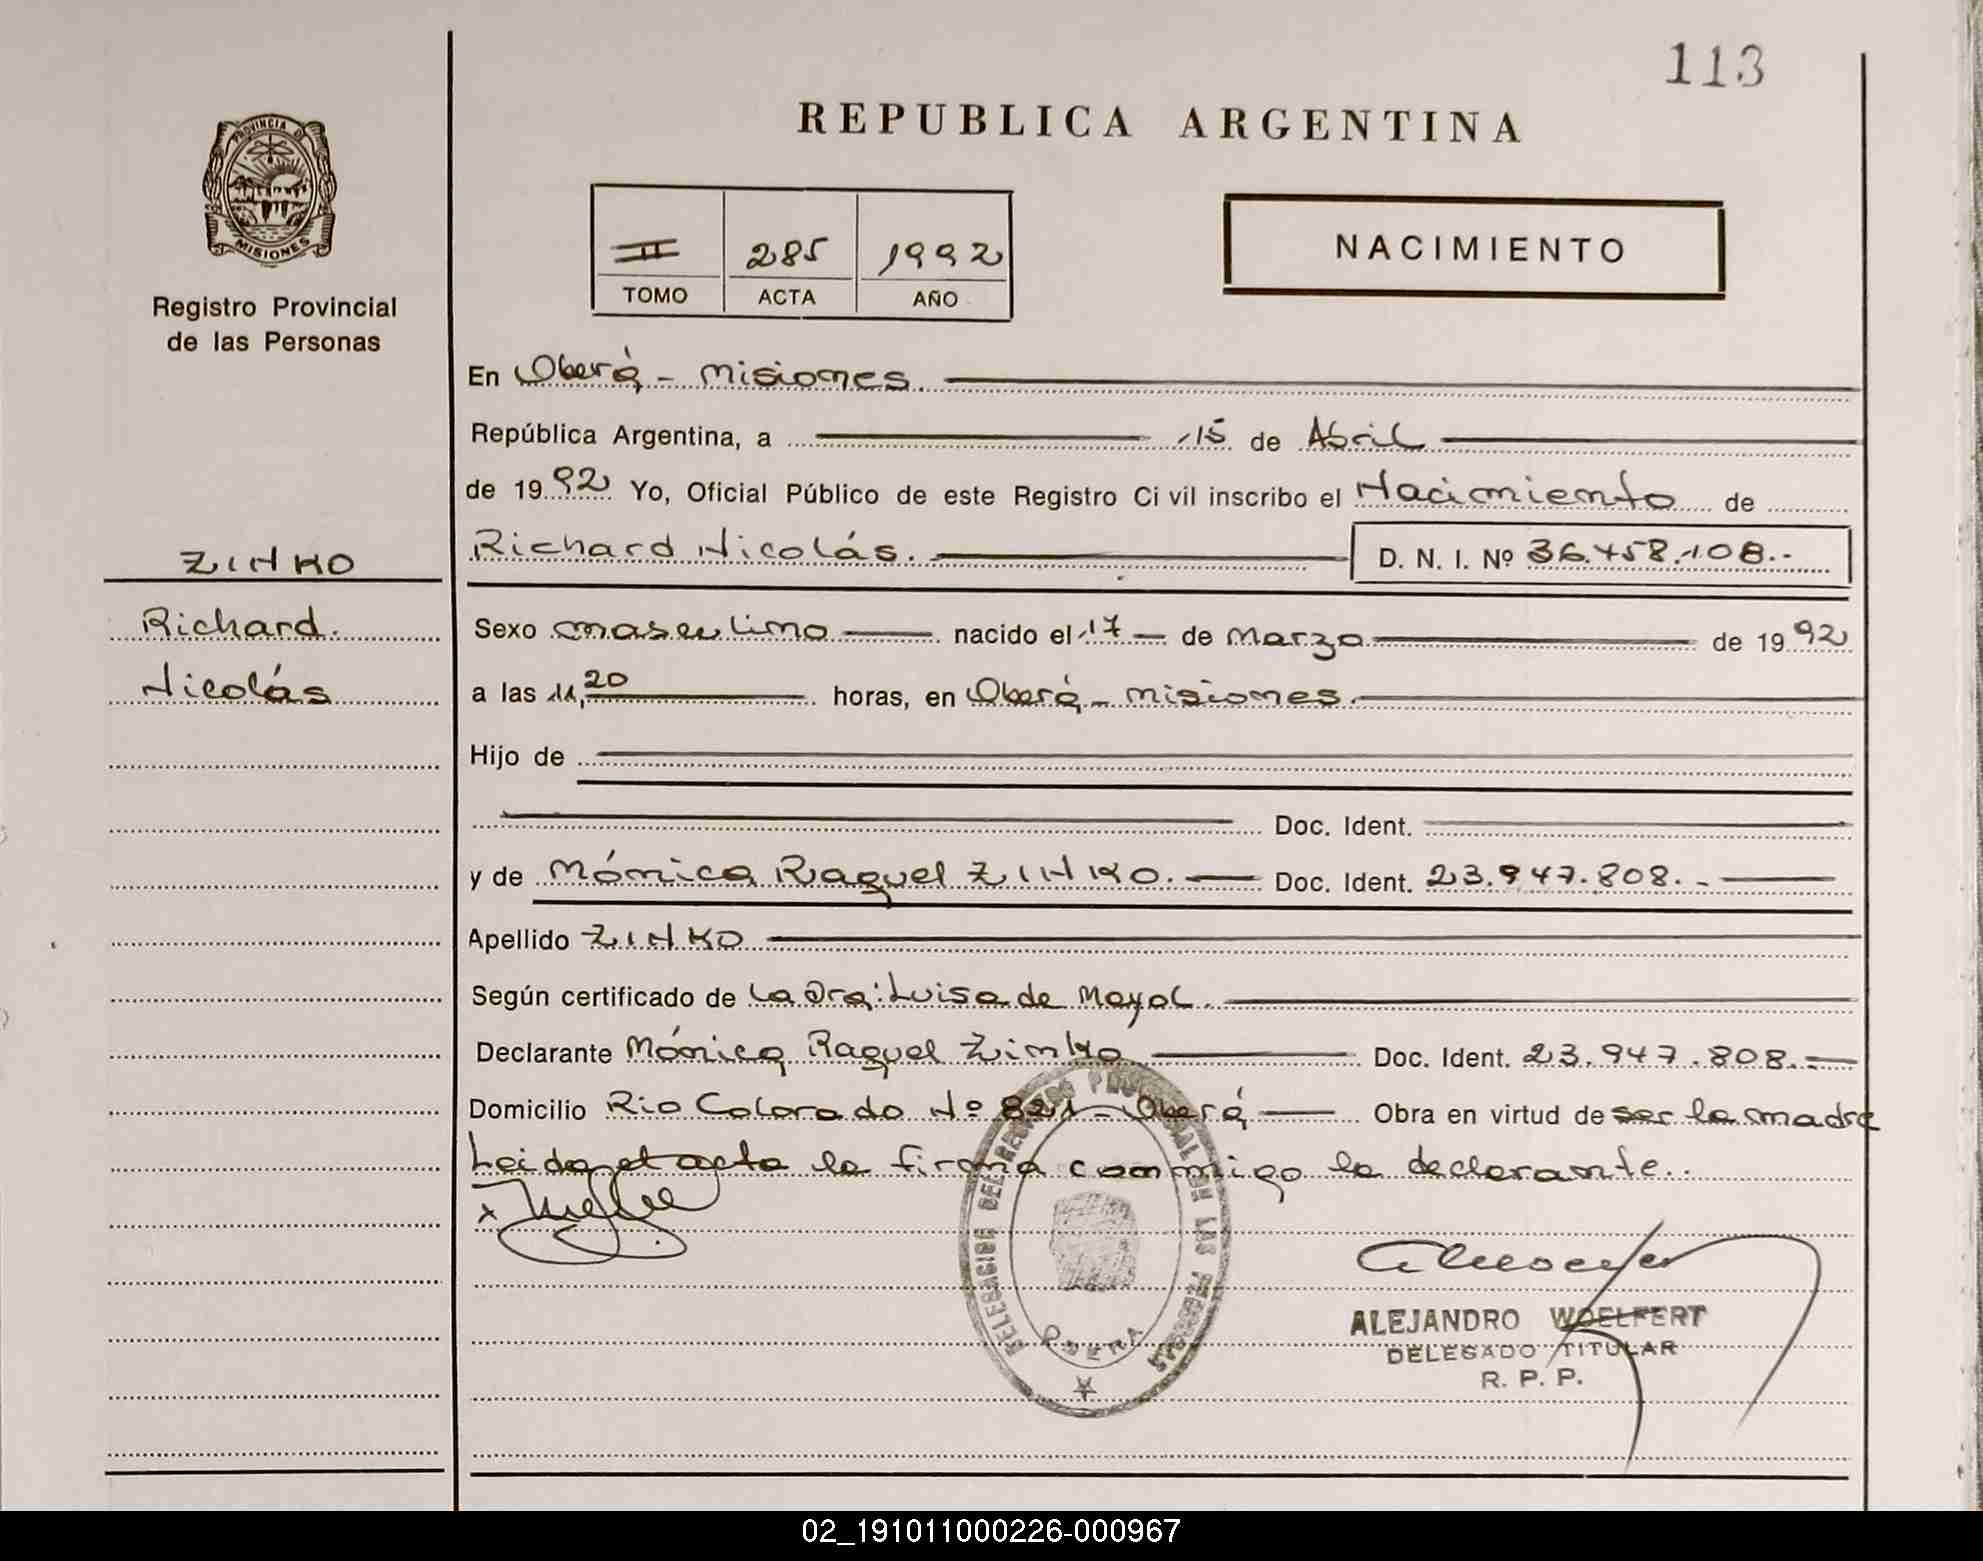 113
REPUBLICA ARGENTINA
PROVINCIA D
MISIONES
Registro Provincial
de las Personas
II 285 1992
TOMO ACTA AÑO
NACIMIENTO
En Oberá - Misiones.
República Argentina, a 15 de Abril
de 1992 Yo, Oficial Público de este Registro Ci vil inscribo el Nacimiento de
Richard Nicolás. D. N. I. Nº 36.458.108.-
ZINKO
Richard.
Nicolás
Sexo masculino nacido el 17 de Marzo de 1992
a las 11,20 horas, en Oberá - Misiones.
Hijo de
Doc. Ident.
y de Mónica Raquel ZINKO. Doc. Ident. 23.947.808.-
Apellido ZINKO
Según certificado de La Dra: Luisa de Mayol.
Declarante Mónica Raquel Zinko Doc. Ident. 23.947.808.-
Domicilio Rio Colorado Nº 821 - Oberá Obra en virtud de ser la madre
Leida el acta la firma conmigo la declarante..
x
DELEGACION DEL REGISTRO PROVINCIAL DE LAS PERSONAS
OBERA
ALEJANDRO WOELFERT
DELEGADO TITULAR
R. P. P.
02_191011000226-000967